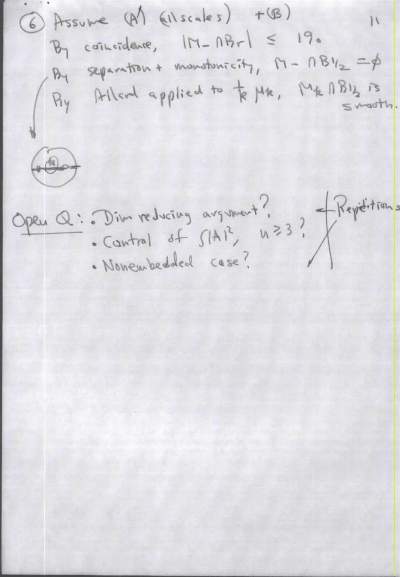 ⑥ Assume (A) (all scales) + (B) 11
By coincidence, |M_ ∩ Br| ≤ 19.
By separation + monotonicity, M_ ∩ B1/2 = ϕ
By Allard applied to 1/k μk, Mk ∩ B1/2 is
smooth.
Open Q: • Dim reducing argument?
• Control of ∫|A|², n ≥ 3?
• Nonembedded case?